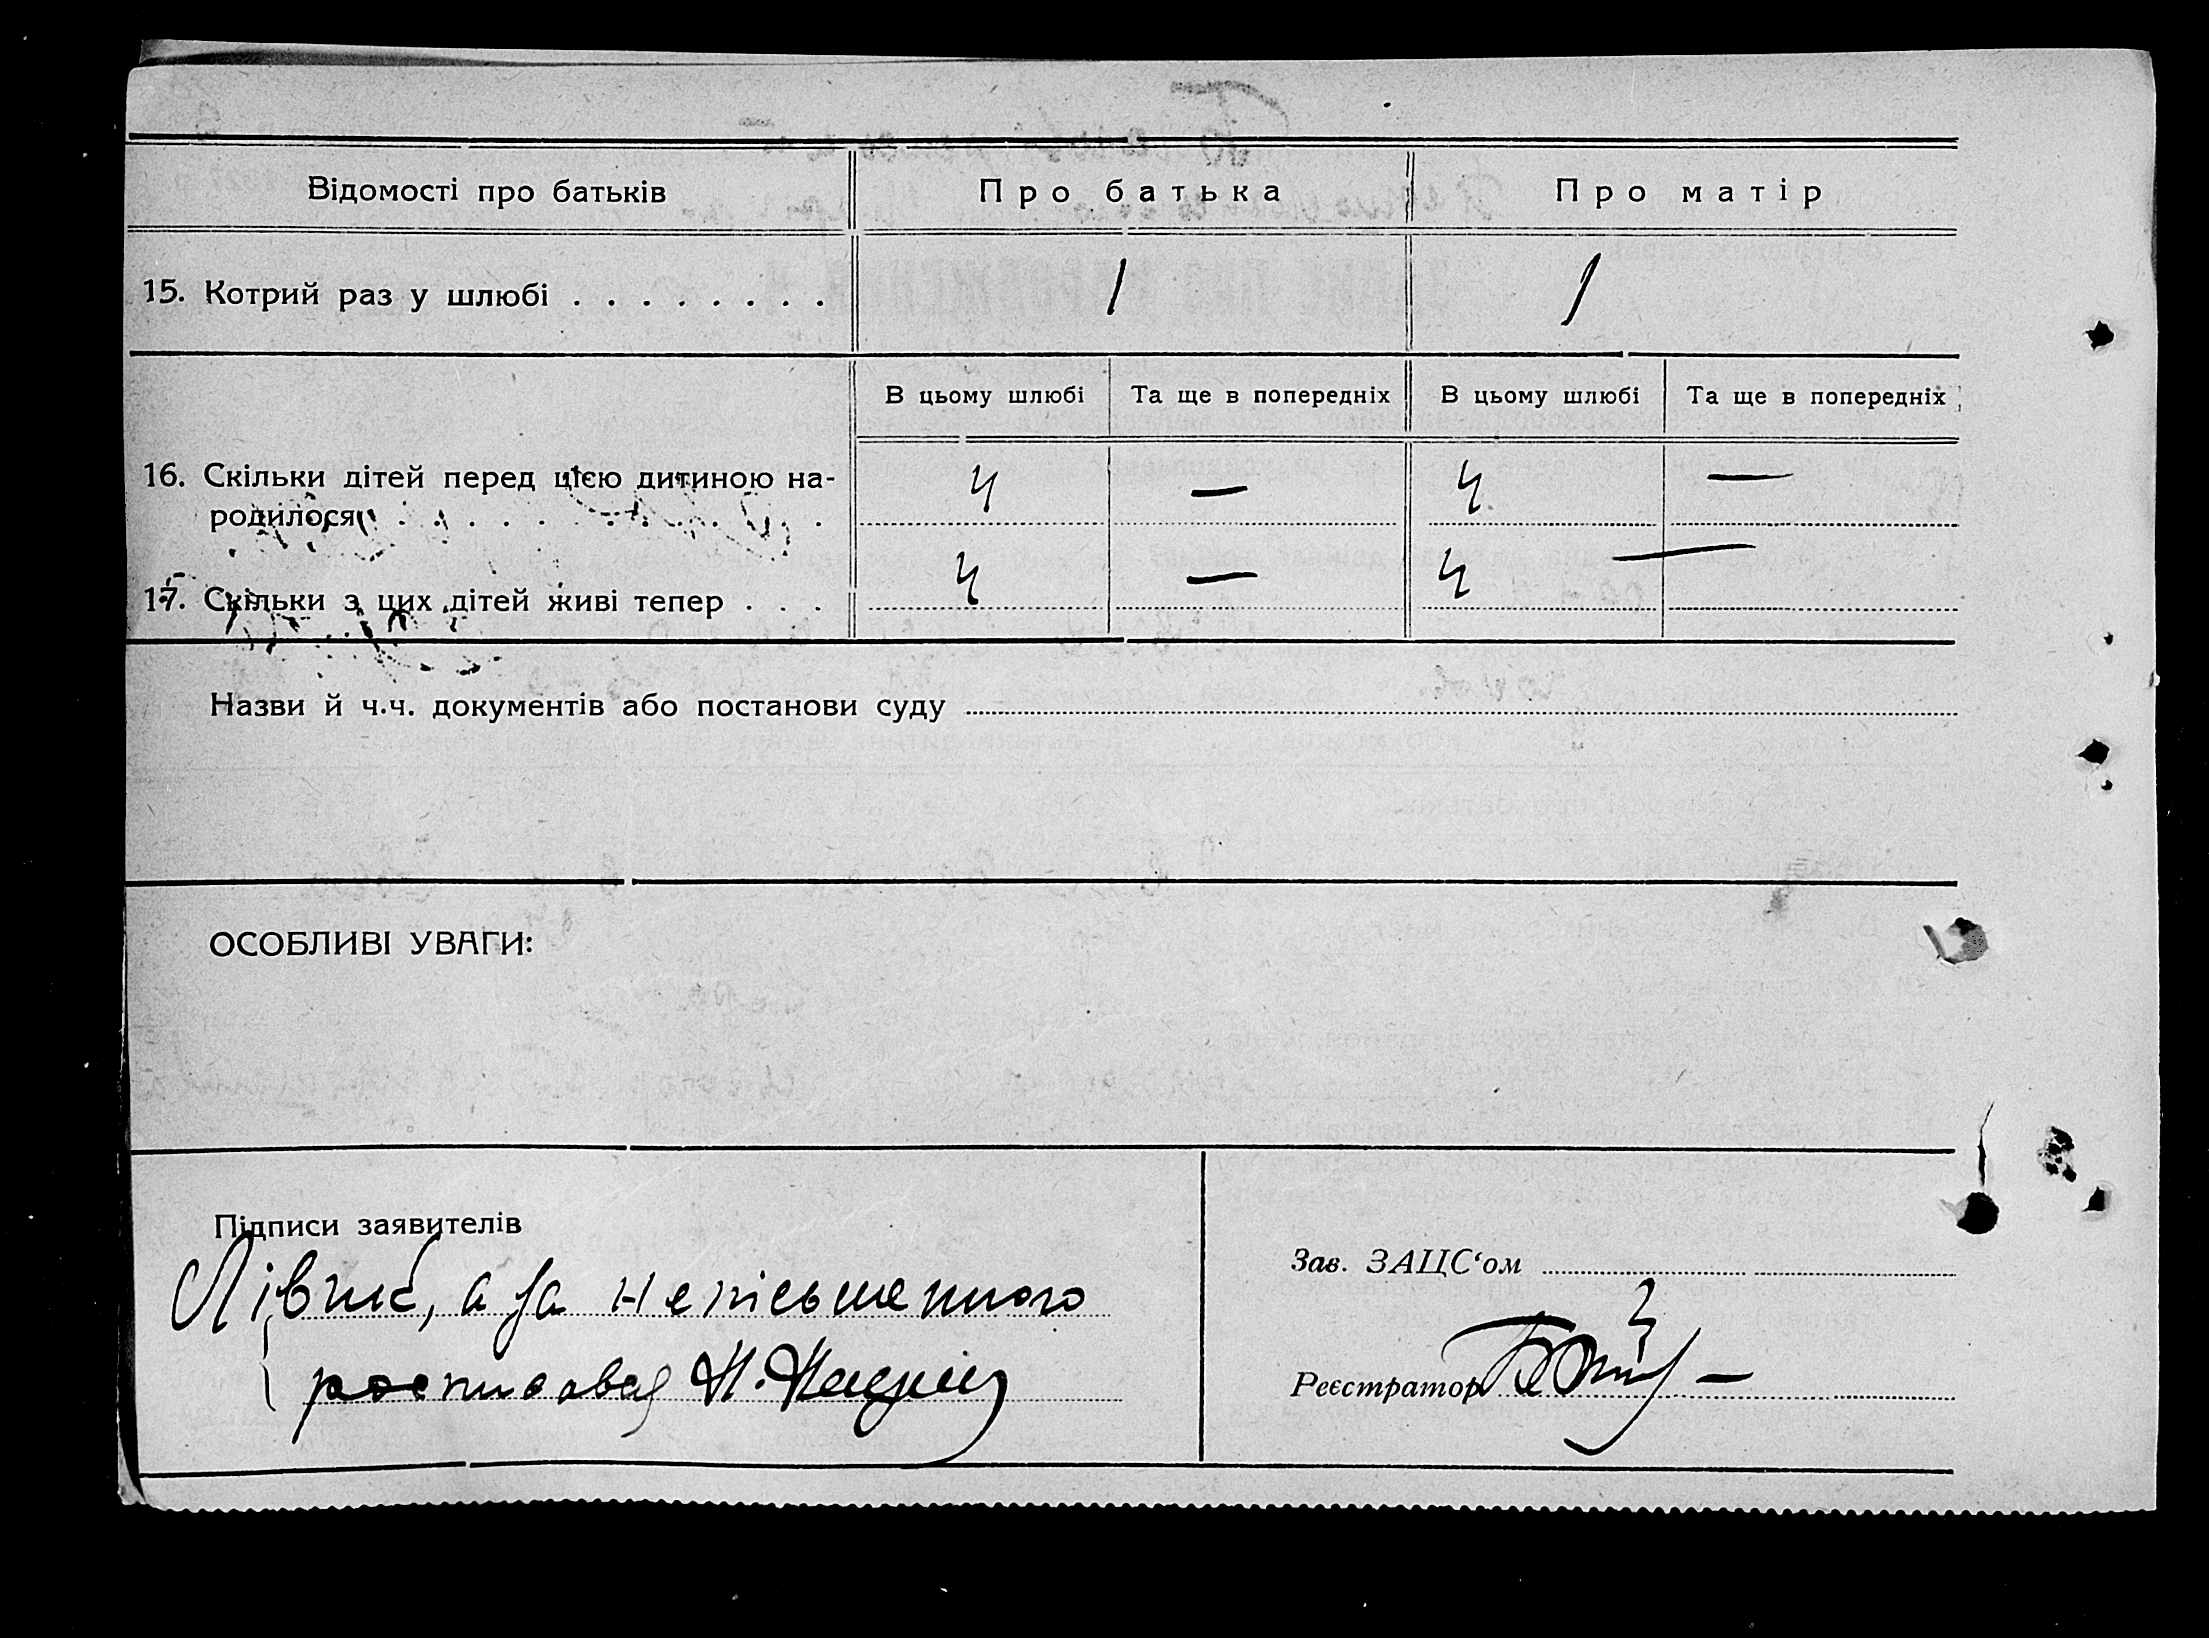 Відомості про батьків Про батька Про матір
15. Котрий раз у шлюбі . . . . . . . . 1 1
В цьому шлюбі Та ще в попередніх В цьому шлюбі Та ще в попередніх
16. Скільки дітей перед цією дитиною на-
родилося . . . . . . . . . . . . 4 — 4 —
17. Скільки з цих дітей живі тепер . . . 4 — 4 —
Назви й ч.ч. документів або постанови суду
ОСОБЛИВІ УВАГИ:
Підписи заявителів
а за неписьменного
росписовад
Зав. ЗАЦС‘ом
Реєстратор